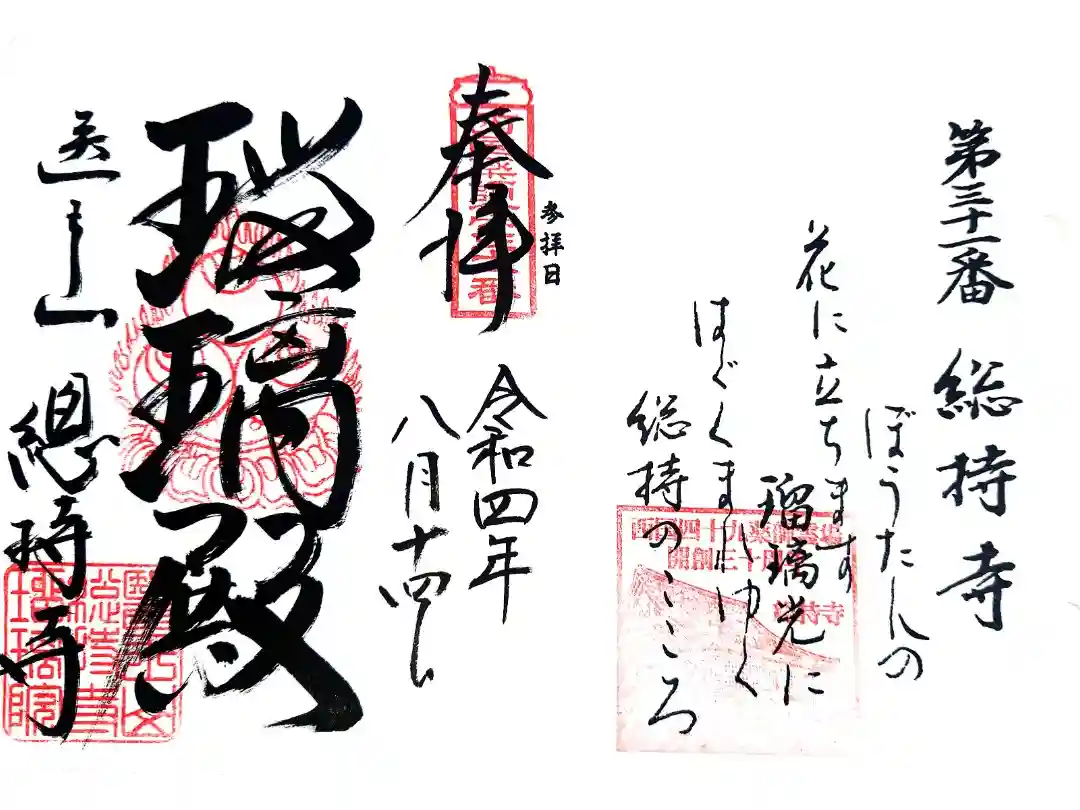 第三十一番 総持寺
ぼうたんの
花に立ちます
瑠璃光に
はぐくまれゆく
総持のこころ
西国四十九薬師霊場
総持寺
参拝日
奉拝
令和四年
八月十四日
瑠璃殿
医王山 總持寺